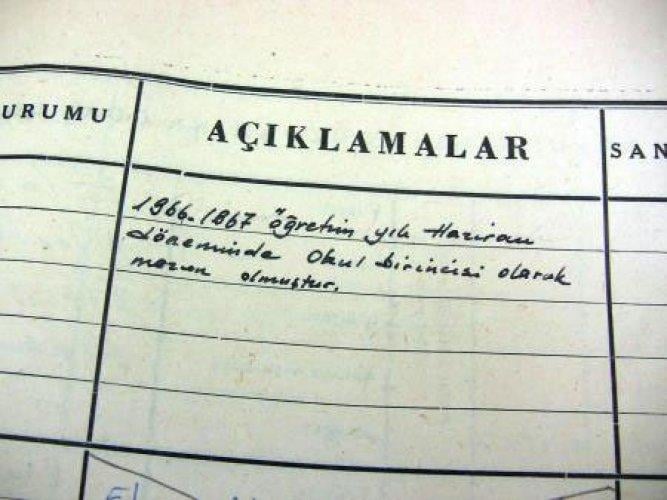 URUMU
AÇIKLAMALAR
SAN
1966-1967 öğretim yılı Haziran
döneminde Okul birincisi olarak
mezun olmuştur.